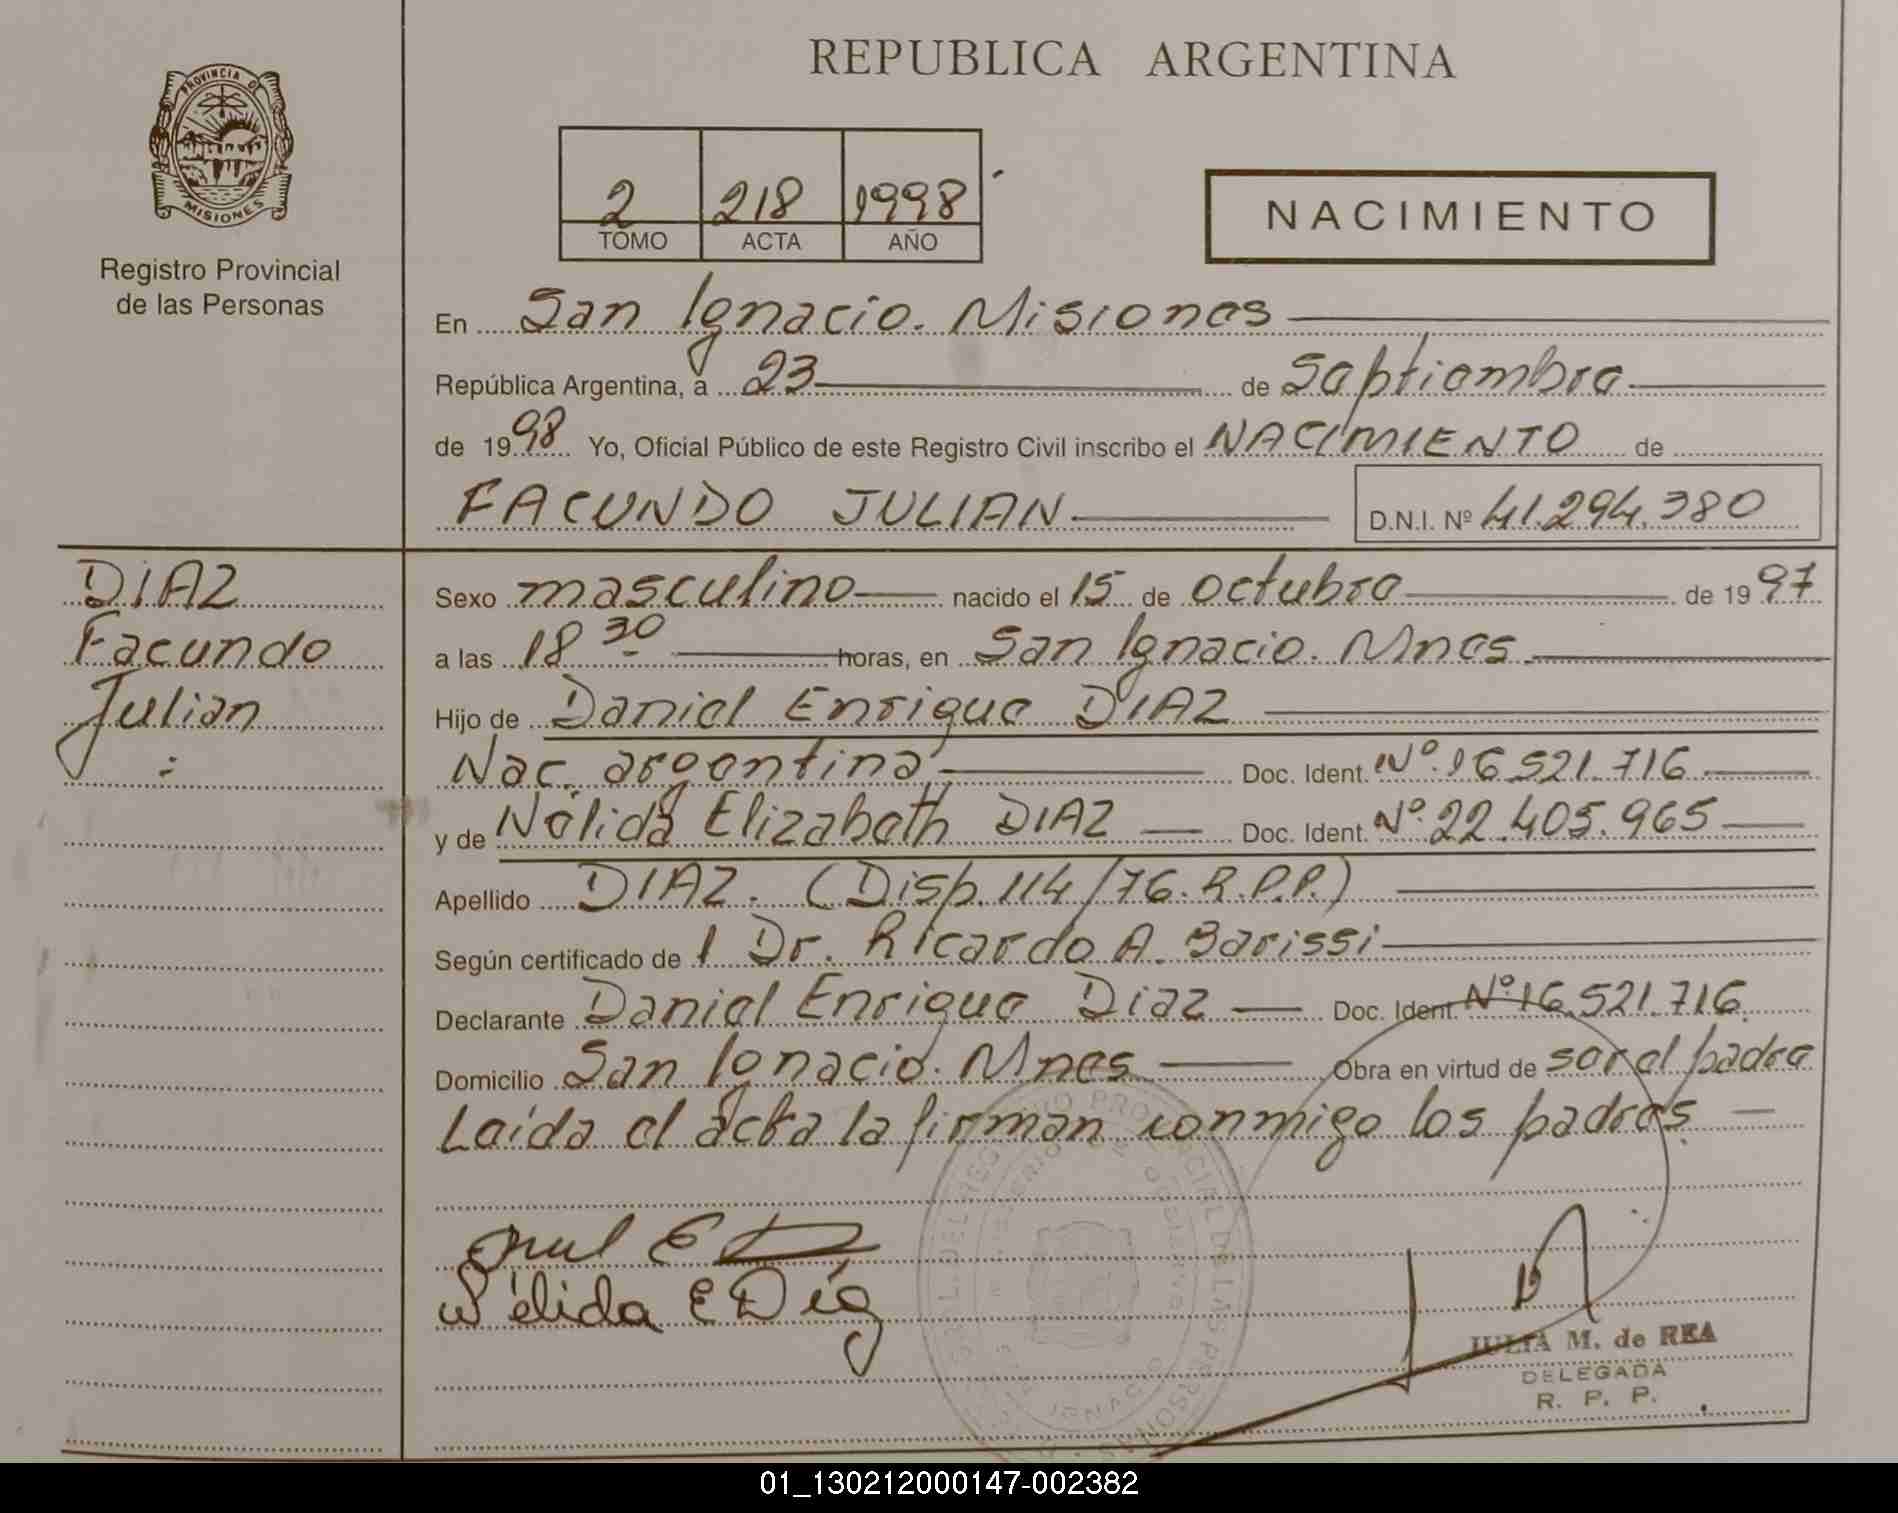 REPUBLICA ARGENTINA
PROVINCIA DE
MISIONES
Registro Provincial
de las Personas
2 218 1998
TOMO ACTA AÑO
NACIMIENTO
En San Ignacio. Misiones
República Argentina, a 23 de Septiembre
de 1998 Yo, Oficial Público de este Registro Civil inscribo el NACIMIENTO de
FACUNDO JULIAN D.N.I. Nº 41.294.380
DIAZ
Facundo
Julian
Sexo masculino nacido el 15 de octubre de 1997
a las 18 30 horas, en San Ignacio. Mnes.
Hijo de Daniel Enrique DIAZ
Nac. argentina Doc. Ident. Nº 16.521.716
y de Nélida Elizabeth DIAZ Doc. Ident. Nº 22.405.965
Apellido DIAZ. (Disp. 114/76. R.P.P.)
Según certificado de l Dr. Ricardo A. Barissi
Declarante Daniel Enrique Diaz Doc. Ident. Nº 16.521.716.
Domicilio San Ignacio. Mnes Obra en virtud de ser el padre
Leída el acta la firman conmigo los padres.
Nélida E Díaz
JULIA M. de REA
DELEGADA
R. P. P.
01_130212000147-002382